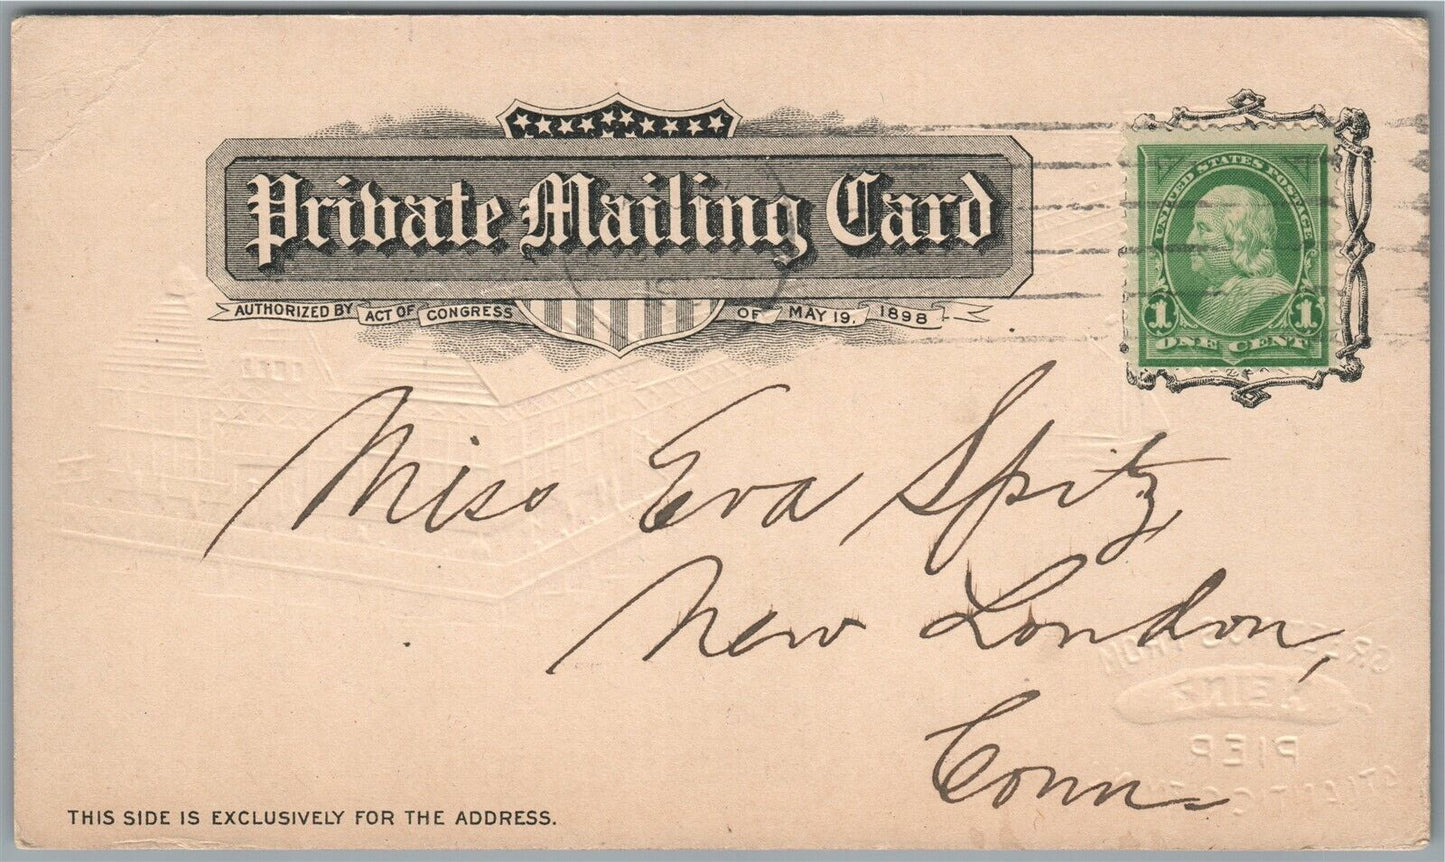 Private Mailing Card
AUTHORIZED BY ACT OF CONGRESS OF MAY 19, 1898
UNITED STATES POSTAGE
1 1
ONE CENT
Miss Eva Spitz
New London,
Conn
GREETINGS FROM
HEINZ
PIER
ATLANTIC CITY
THIS SIDE IS EXCLUSIVELY FOR THE ADDRESS.